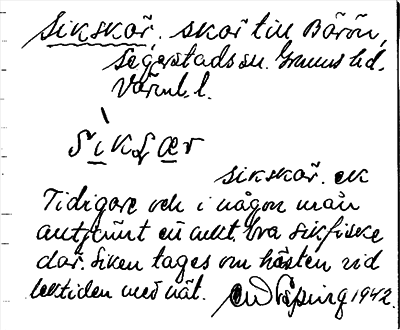 Sikskär. skär till Bärön,
Segerstads sn. Grums hd.
Värml. l.
Sikʃær
sikskär. ek
Tidigare och i någon mån
ännu ett bra sikfiske
där. Siken tages om hösten vid
lektiden med nät. 1942.